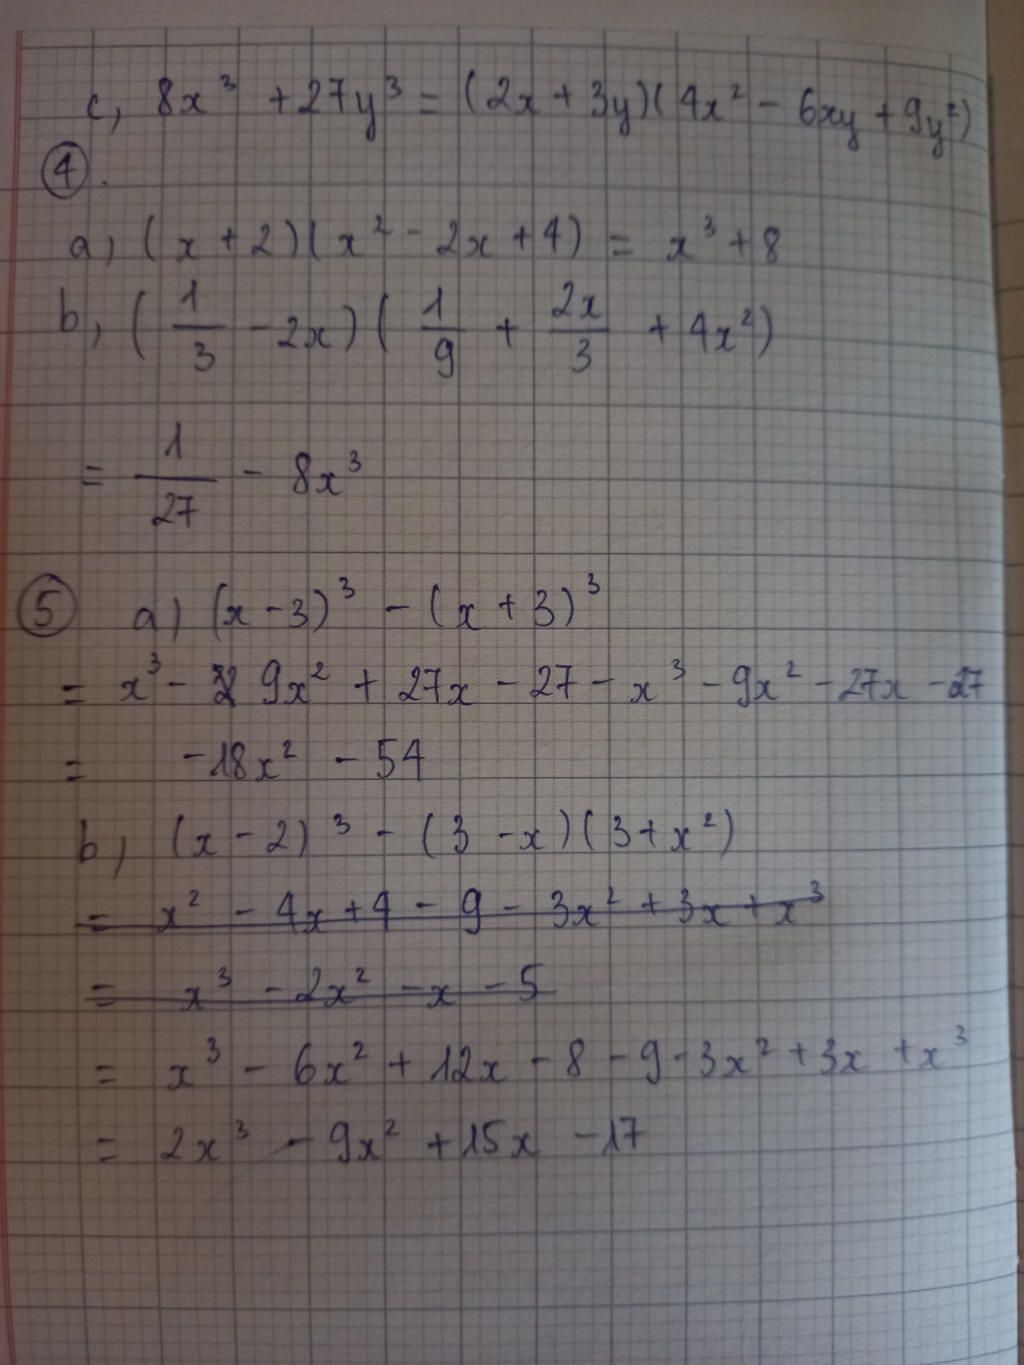 c, 8x³ + 27y³ = (2x + 3y)(4x² - 6xy + 9y²)
④.
a, (x + 2)(x² - 2x + 4) = x³ + 8
b, (1/3 - 2x)(1/9 + 2x/3 + 4x²)
= 1/27 - 8x³
⑤ a) (x - 3)³ - (x + 3)³
= x³ - 9x² + 27x - 27 - x³ - 9x² - 27x - 27
= -18x² - 54
b, (x - 2)³ - (3 - x)(3 + x²)
= x² - 4x + 4 - 9 - 3x² + 3x + x³
= x³ - 2x² - x - 5
= x³ - 6x² + 12x - 8 - 9 - 3x² + 3x + x³
= 2x³ - 9x² + 15x - 17